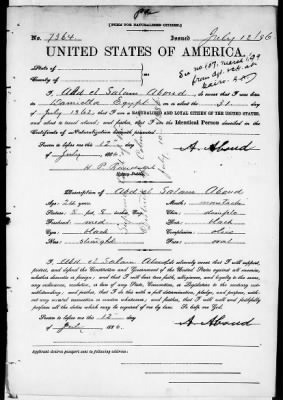 [FORM FOR NATURALIZED CITIZEN.]
No. 7364. Issued July 12/86
UNITED STATES OF AMERICA.
State of
County of
I, Abd el Salam Aboud, do swear that I was born
in Damietta Egypt on or about the 31 day
of July 1862, that I am a NATURALIZED AND LOYAL CITIZEN OF THE UNITED STATES,
and about to travel abroad; and further, that I am the Identical Person described in the
Certificate of Naturalization herewith presented.
Sworn to before me this 12
day
of July 1886
A. Aboud
Notary Public.
Description of Abd el Salam Aboud
Age: 24 years
Mouth: mustache
Stature: 5 feet, 8 inches, Eng.
Chin: dimple
Forehead: med
Hair: black
Eyes: black
Complexion: olive
Nose: straight
Face: oval
I, Abd el Salam Aboud, solemnly swear that I will support,
protect, and defend the Constitution and Government of the United States against all enemies,
whether domestic or foreign; and that I will bear true faith, allegiance, and loyalty to the same,
any ordinance, resolution, or law of any State, Convention, or Legislature to the contrary not-
withstanding; and further, that I do this with a full determination, pledge, and purpose, with-
out any mental reservation or evasion whatsoever; and further, that I will well and faithfully
perform all the duties which may be required of me by law. So help me God.
Sworn to before me this 12
day
of July 1886.
A. Aboud
Applicant desires passport sent to following address: